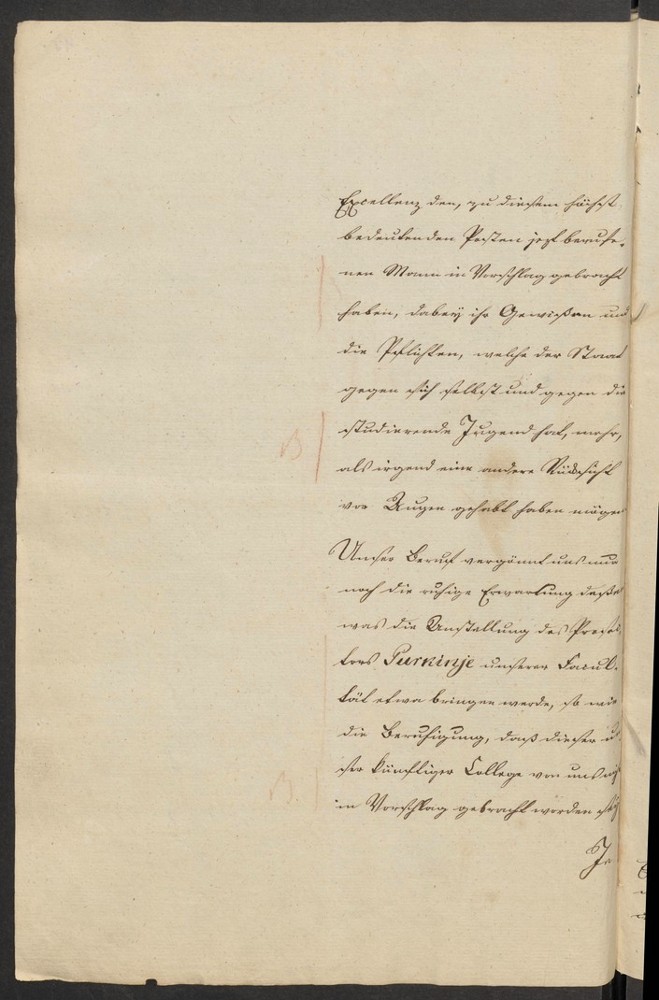 Excellenz den, zu diesem höchst
bedeutenden Posten jezt berufe-
nen Mann in Vorschlag gebracht
haben, dabey ihr Gewissen und
die Pflichten, welche der Staat
gegen sich selbst und gegen die
studierende Jugend hat, mehr,
als irgend eine andere Rücksicht
vor Augen gehabt haben mögen
Unser Beruf vergönnt uns nur
noch die ruhige Erwartung dessen
was die Anstellung des Prosec-
tors Purkinje unserer Facul-
tät etwa bringen werde, so wie
die Beruhigung, daß dieser un-
ser künftiger College von uns nicht
in Vorschlag gebracht worden
B
B.